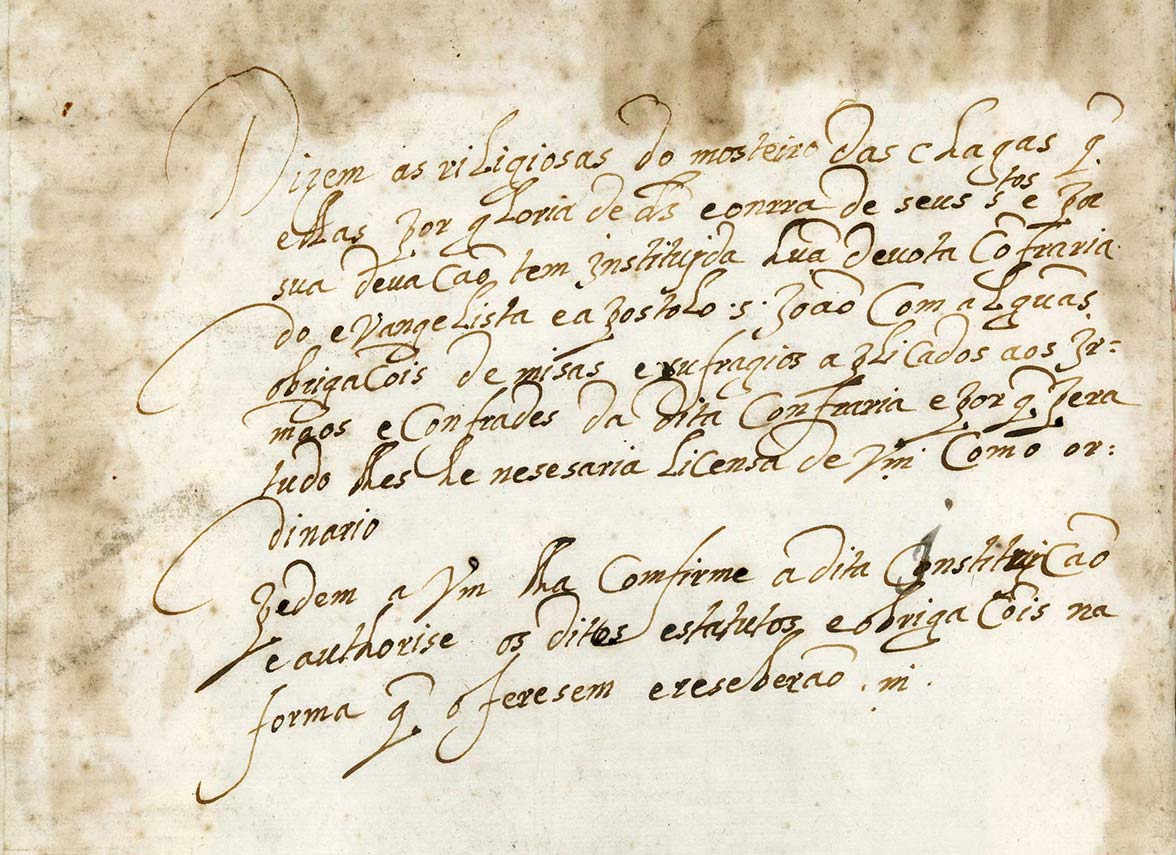 Dizem as riligiosas do mosteiro das chagas q̃
ellas por gloria de ds̃ e onrra de seus stos e por
sua devacaõ tem instituida huã devota Cõfraria
do evangelista e apostolo .s. Joaõ Com alguas
obrigacõis de misas e sufragios aplicados aos Ir=
maõs e Confrades da dita Confraria e por q̃ pera
tudo lhes he nesesaria licensa de Vm Como or=
dinario
Pedem a Vm lha Comfirme a dita Constituicaõ
e authorise os dittos estatutos e obrigacõis na
forma q̃ oferesem e reseberaõ .m.